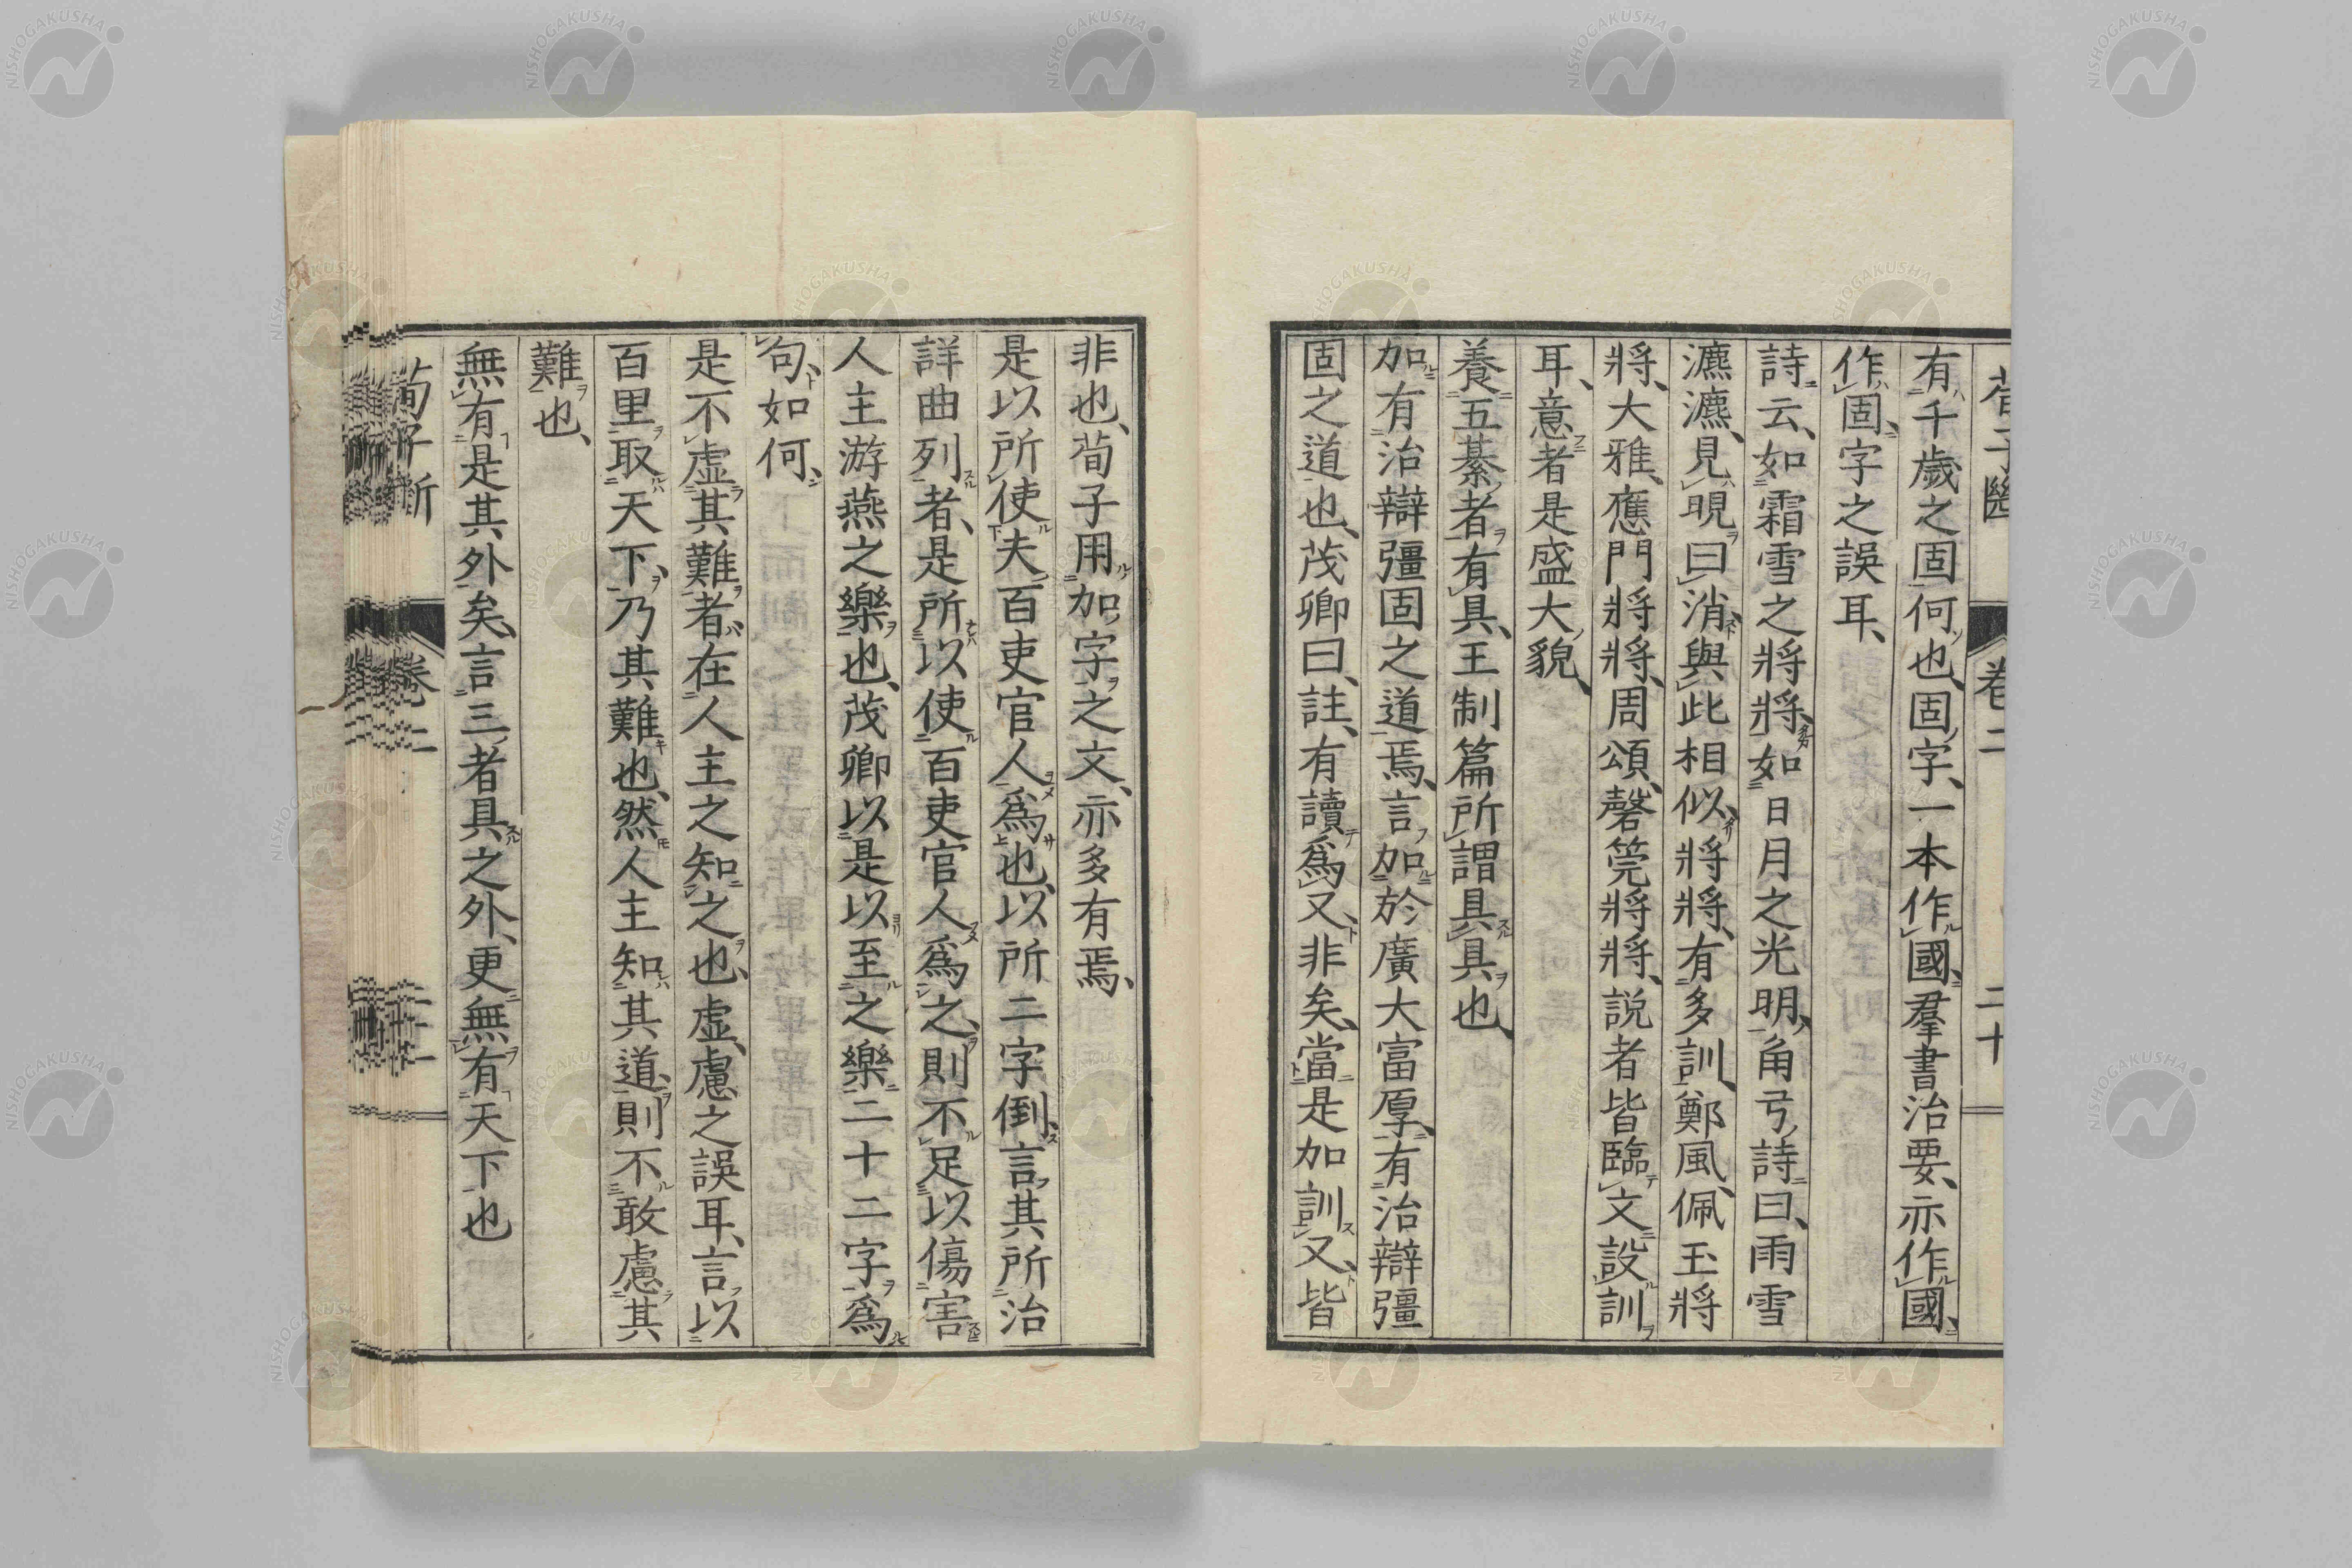 有千歲之固何也、固字、一本作國、羣書治要、亦作國、
作固、字之誤耳、
詩云、如霜雪之將將、如日月之光明、角弓詩曰、雨雪
瀌瀌、見晛曰消、與此相似、將將、有多訓、鄭風、佩玉將
將、大雅、應門將將、周頌、磬筦將將、說者皆臨文設訓
耳、意者是盛大貌、
養五綦者有具、王制篇所謂具具也、
加有治辯彊固之道焉、言加於廣大富厚、有治辯彊
固之道也、茂卿曰、註、有讀爲又、非矣、當是加訓又、皆
非也、荀子用加字之文、亦多有焉、
是以所使夫百吏官人爲也、以所二字倒言、其所治
詳曲列者、是所以使百吏官人爲之、則不足以傷害
人主游燕之樂也、茂卿以是以至之樂二十二字爲
句、如何、
是不虛其難者、在人主之知之也、虛、慮之誤耳、言以
百里取天下、乃其難也、然人主知其道、則不敢慮其
難也、
無有是其外矣、言三者具之外、更無有天下也
荀子斷
卷二
二十
NISHOGAKUSHA